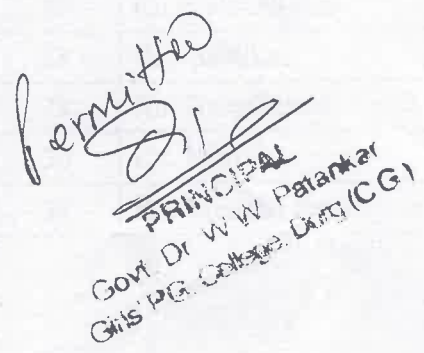 Permitted
PRINCIPAL
Govt Dr W.W. Patankar
Girls' P.G. College, Durg (C G)